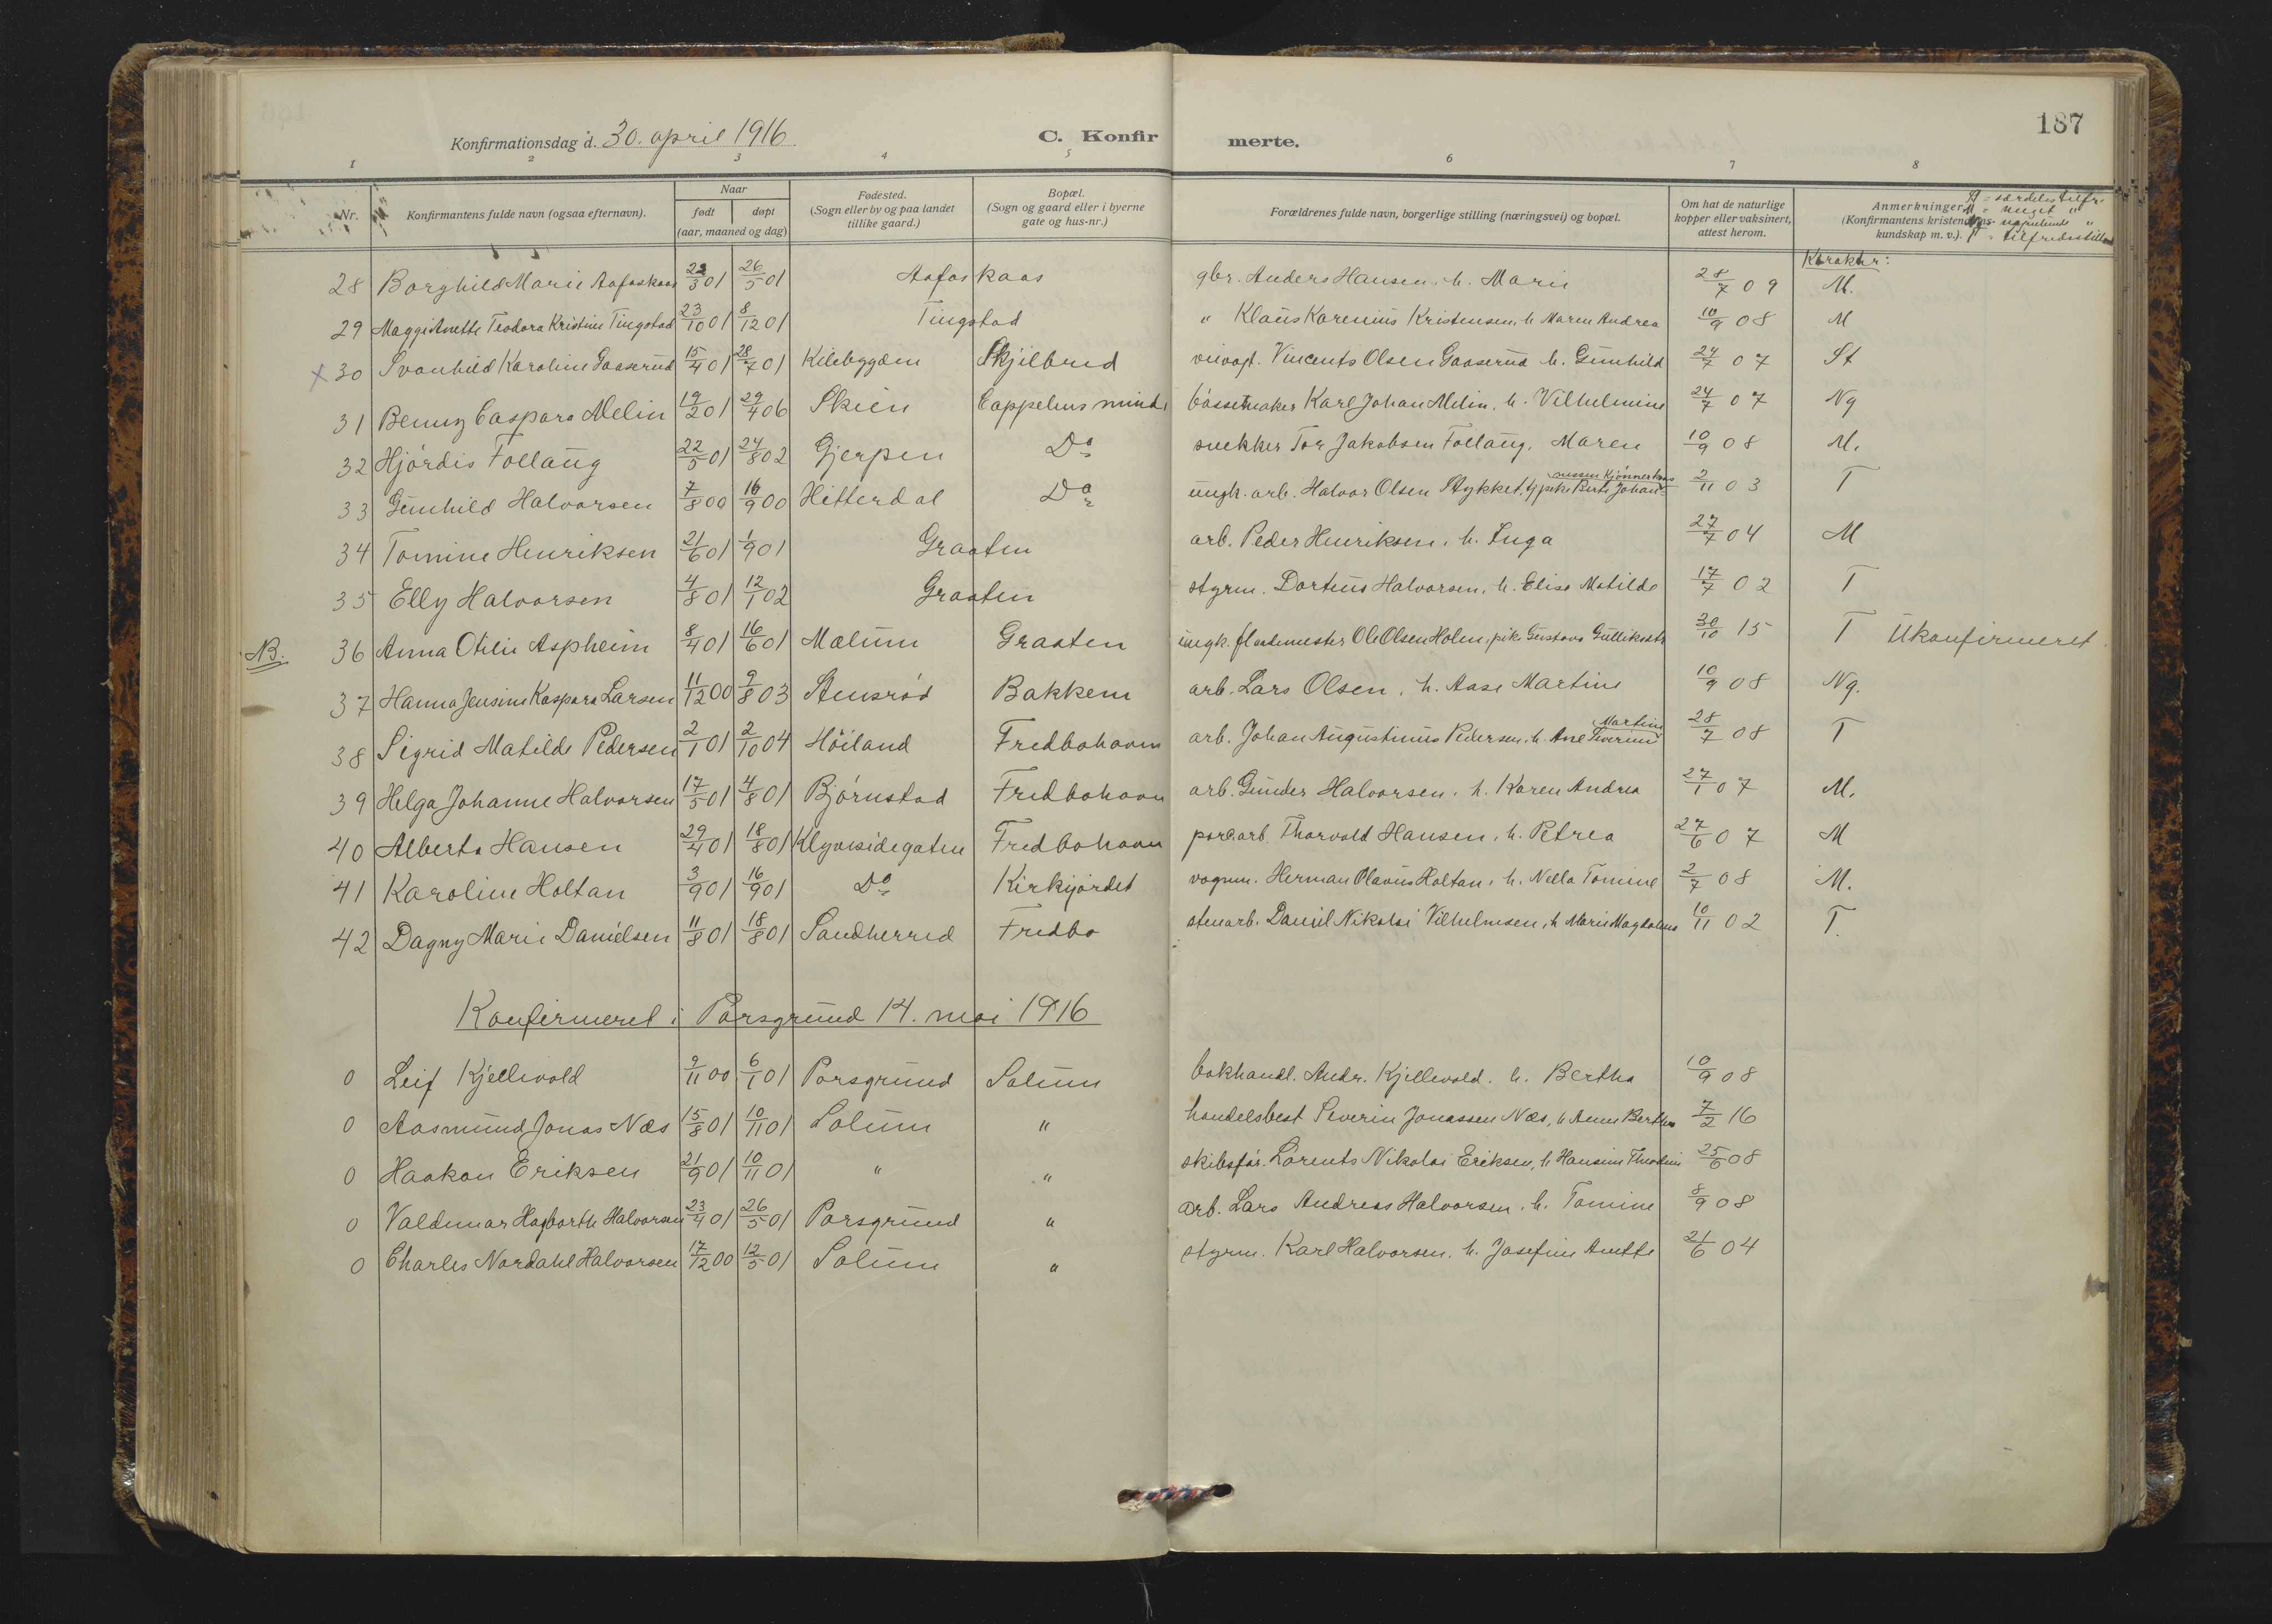 187
Konfirmationsdag d. 30. april 1916
C. Konfirmerte.
1 2 3 4 5 6 7 8
Nr. Konfirmantens fulde navn (ogsaa efternavn). Naar født døpt (aar, maaned og dag) Fødested. (Sogn eller by og paa landet tillike gaard.) Bopæl. (Sogn og gaard eller i byerne gate og hus-nr.) Forældrenes fulde navn, borgerlige stilling (næringsvei) og bopæl. Om hat de naturlige kopper eller vaksinert, attest herom. Anmerkninger (Konfirmantens kristendoms- kundskap m. v.).
St = særdeles tilfr.
M = meget "
Ng = nogenlunde "
T = tilfredsstill
Karakter:
28 Borghild Marie Aafoskaas 22/3 01 26/5 01 Aafoskaas gbr. Anders Hansen, h. Marie 28/7 09 M.
29 Maggi Anette Teodora Kristine Tingstad 23/10 01 8/12 01 Tingstad " Klaus Karenius Kristensen, h. Maren Andrea 10/9 08 M
× 30 Svanhild Karoline Gaaserud 15/4 01 28/7 01 Kilebygden Skjilbred Vincents Olsen Gaaserud h. Gunhild 24/7 07 St
31 Benny Caspara Melin 19/2 01 29/4 06 Skien Cappelens minde bøssemaker Karl Johan Melin, h. Vilhelmine 24/7 07 Ng
32 Hjördis Follaug 22/5 01 24/8 02 Gjerpen Do snekker Tor Jakobsen Follaug, Maren 10/9 08 M.
33 Gunhild Halvorsen 7/8 00 16/9 00 Hitterdal Do ungk. arb. Halvor Olsen Stykket, pike Berte Johan- 2/11 03 T
34 Tomine Henriksen 21/6 01 1/9 01 Graaten arb. Peder Henriksen, h. Inga 27/7 04 M
35 Elly Halvorsen 4/8 01 12/1 02 Graaten styrm. Dortius Halvorsen, h. Elise Matilde 17/7 02 T
NB. 36 Anna Otilie Aspheim 8/4 01 16/6 01 Mælum Graaten ungk. flaatemester Ole Olsen Holen, pike Gustava Gulliksdt 30/10 15 T Ukonfirmeret.
37 Hanna Jensine Kaspara Larsen 11/12 00 9/8 03 Stensrød Bakken arb. Lars Olsen, h. Aase Martine 10/9 08 Ng.
38 Sigrid Matilde Pedersen 2/1 01 2/10 04 Høiland Fredbohavn arb. Johan Augustinus Pedersen, h. Ane Severine Martine 28/7 08 T
39 Helga Johanne Halvorsen 17/5 01 4/8 01 Bjørnstad Fredbohavn arb. Gunder Halvorsen, h. Karen Andrea 27/1 07 M.
40 Alberta Hansen 29/4 01 18/8 01 Klyvesidegaten Fredbohavn porc.arb. Thorvald Hansen, h. Petrea 27/6 07 M
41 Karoline Holtan 3/9 01 16/9 01 Do Kirkjordet vognm. Herman Olavus Holtan, h. Nella Tomine 2/7 08 M.
42 Dagny Marie Danielsen 11/8 01 18/8 01 Sandherred Fredbo stenarb. Daniel Nikolai Vilhelmsen, h. Marie Magdalena 10/11 02 T.
Konfirmeret i Porsgrund 14. mai 1916
0 Leif Kjellevold 9/11 00 6/1 01 Porsgrund Solum bokhandl. Andr. Kjellevold. h. Bertha 10/9 08
0 Aasmund Jonas Næs 15/8 01 10/11 01 Solum " handelsbest Severin Jonassen Næs, h Anne Bertha 7/2 16
0 Haakon Eriksen 21/9 01 10/11 01 " " skibsfør. Lorents Nikolai Eriksen, h Hansine Thodine 25/6 08
0 Valdemar Hagbarth Halvorsen 23/4 01 26/5 01 Porsgrund " arb. Lars Andreas Halvorsen, h. Tomine 8/9 08
0 Charles Nordahl Halvorsen 17/12 00 12/5 01 Solum " styrm. Karl Halvorsen, h. Josefine Anette 21/6 04